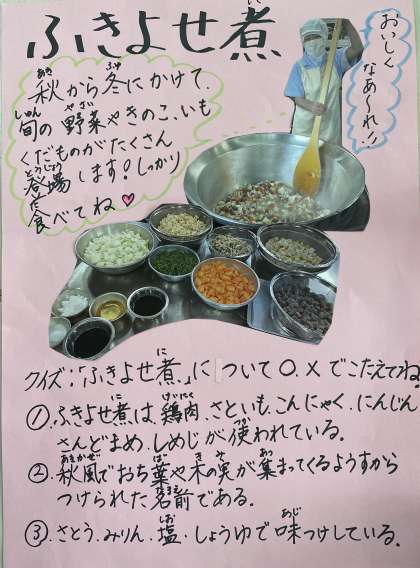 ふきよせ煮
おいしく
なあ〜れ!!
秋から冬にかけて、
旬の野菜やきのこ、いも
くだものがたくさん
登場します!しっかり
食べてね♥
クイズ:「ふきよせ煮」について○、×でこたえてね
①.ふきよせ煮は、鶏肉、さといも、こんにゃく、にんじん
さんどまめ、しめじが使われている。
②.秋風でおち葉や木の実が集まってくるようすから
つけられた名前である。
③.さとう、みりん、塩、しょうゆで味つけしている。